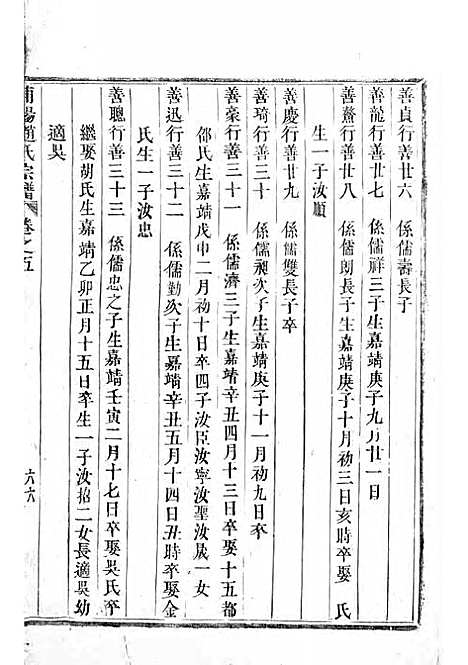 善貞行善廿六　係儒壽長子
善龍行善廿七　係儒祥三子生嘉靖庚子九月廿一日
善鰲行善廿八　係儒朗長子生嘉靖庚子十月初三日亥時卒娶　氏
生一子汝順
善慶行善廿九　係儒雙長子卒
善琦行善三十　係儒昶次子生嘉靖庚子十一月初九日卒
善豪行善三十一　係儒濟三子生嘉靖辛丑四月十三日卒娶十五都
邵氏生嘉靖戊申二月初十日卒四子汝臣汝寧汝聖汝晟一女
善迅行善三十二　係儒勤次子生嘉靖辛丑五月十四日丑時卒娶金
氏生一子汝忠
善聰行善三十三　係儒忠之子生嘉靖壬寅二月十七日卒娶吳氏卒
繼娶胡氏生嘉靖乙卯正月十五日卒生一子汝招二女長適吳幼
適吳
浦陽趙氏宗譜　卷之五　六六